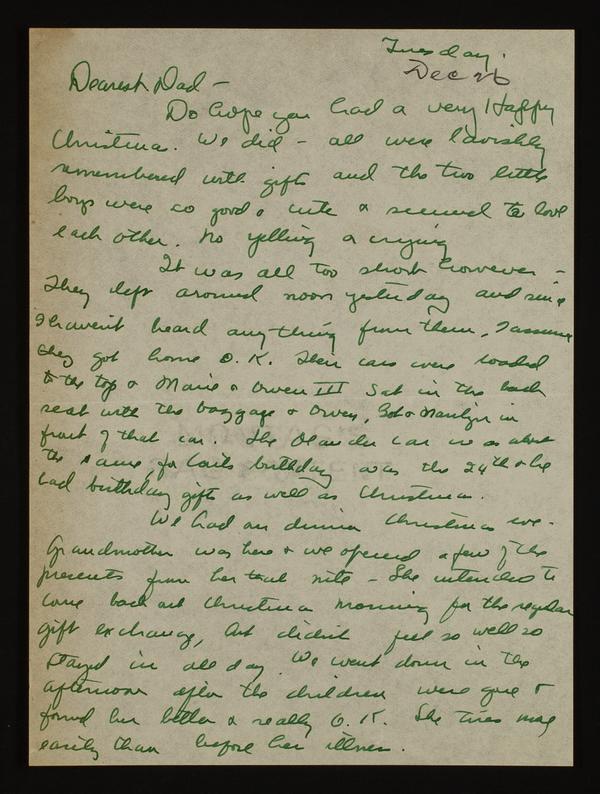 Tuesday.
Dec 26
Dearest Dad -
Do hope you had a very Happy
Christma. We did - all were lavishly
remembered with gifts and the two little
boys were so good & cute & seemed to love
each other. No yelling & crying
It was all too short however -
They left around noon yesterday and since
I haven't heard anything from them, I assume
they got home O.K. Their cars were loaded
to the top & Marie & Owen III sat in the back
seat with the baggage & Owen, & Marilyn in
front of that car. The car was about
the same, for birthday was the 24th & he
had birthday gifts as well as Christmas.
We had our dinner Christmas eve -
Grandmother was here & we opened a few of the
presents from her that nite - She intended to
come back out Christmas morning for the regular
gift exchange, but didn't feel so well so
stayed in all day. We went down in the
afternoon after the children were gone &
found her better & really O.K. She tires more
easily than before her illness.